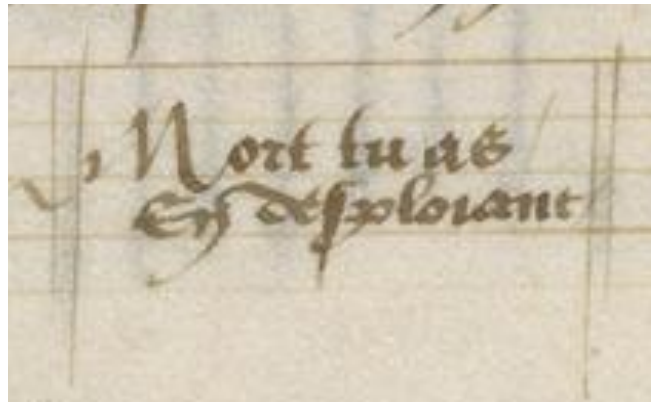 Mort tu as
En desploiant